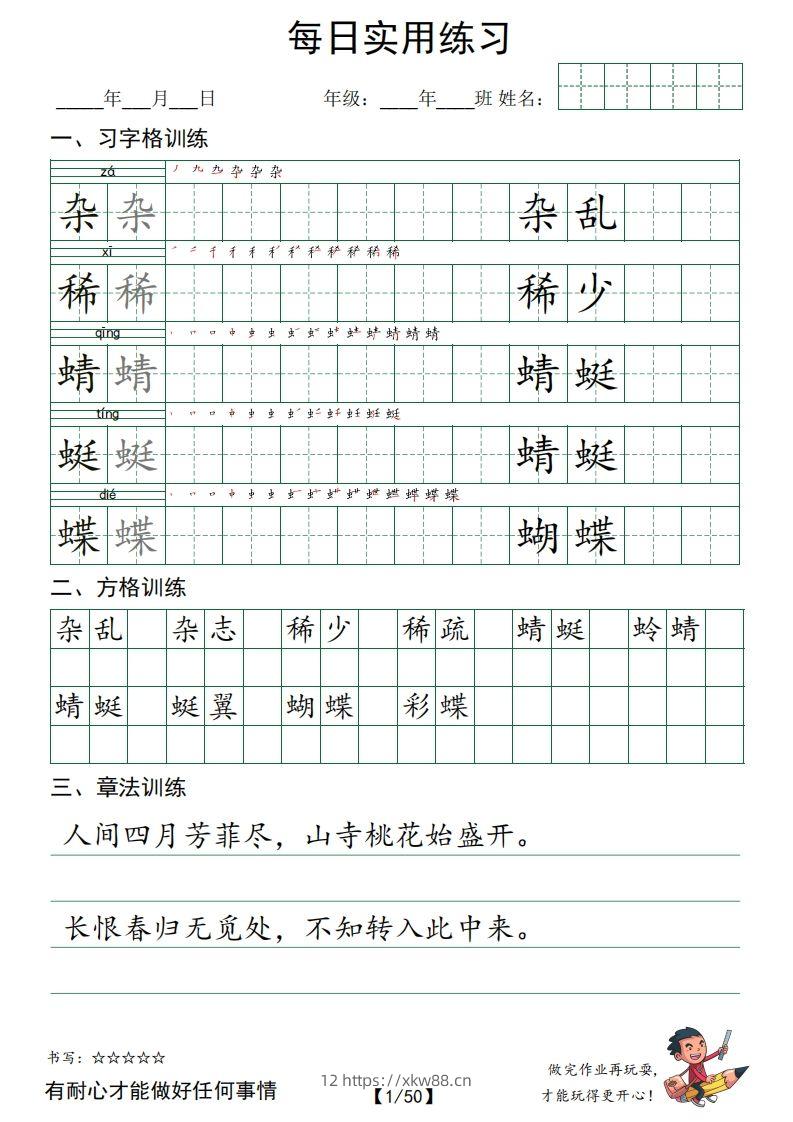 每日实用练习
_____年___月___日 年级：____年____班 姓名：
一、习字格训练
zá
杂 杂 杂 乱
xī
稀 稀 稀 少
qīng
蜻 蜻 蜻 蜓
tíng
蜓 蜓 蜻 蜓
dié
蝶 蝶 蝴 蝶
二、方格训练
杂 乱 杂 志 稀 少 稀 疏 蜻 蜓 蛉 蜻
蜻 蜓 蜓 翼 蝴 蝶 彩 蝶
三、章法训练
人间四月芳菲尽，山寺桃花始盛开。
长恨春归无觅处，不知转入此中来。
书写：☆☆☆☆☆
有耐心才能做好任何事情
12 https://xkw88.cn
【1/50】
做完作业再玩耍，
才能玩得更开心！